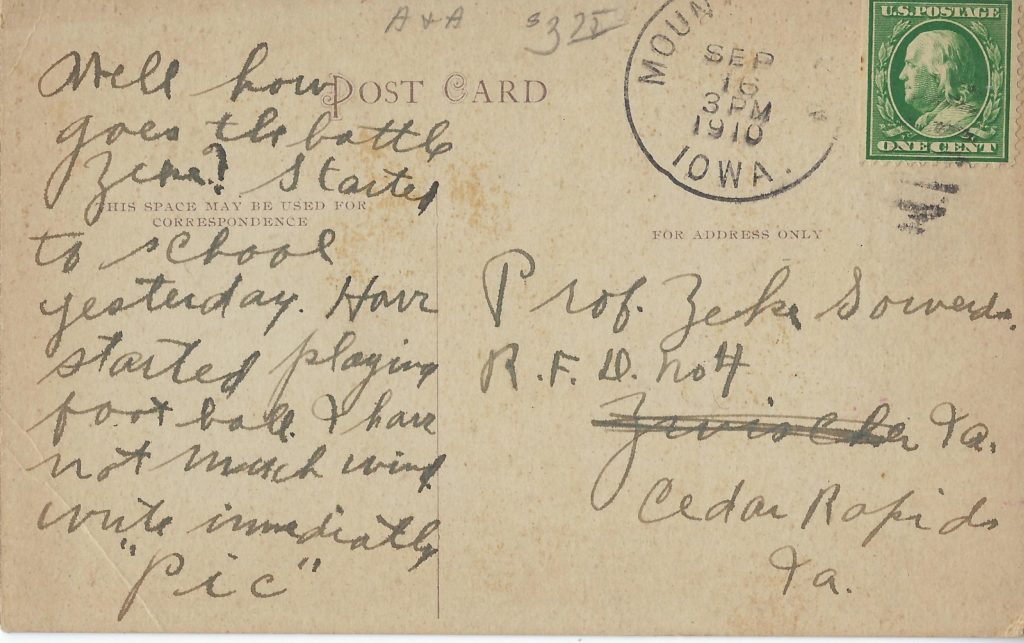 A & A $3 25
POST CARD
Well how
goes the battle
Zeke? Started
THIS SPACE MAY BE USED FOR
CORRESPONDENCE
to school
yesterday. Have
started playing
foot ball. I have
not much wind
write immediately
"Pic"
MOUN
SEP
16
3 PM
1910
IOWA.
U.S. POSTAGE
ONE CENT
FOR ADDRESS ONLY
Prof. Zeke
R.F.D. No 4
Ia.
Cedar Rapids
Ia.